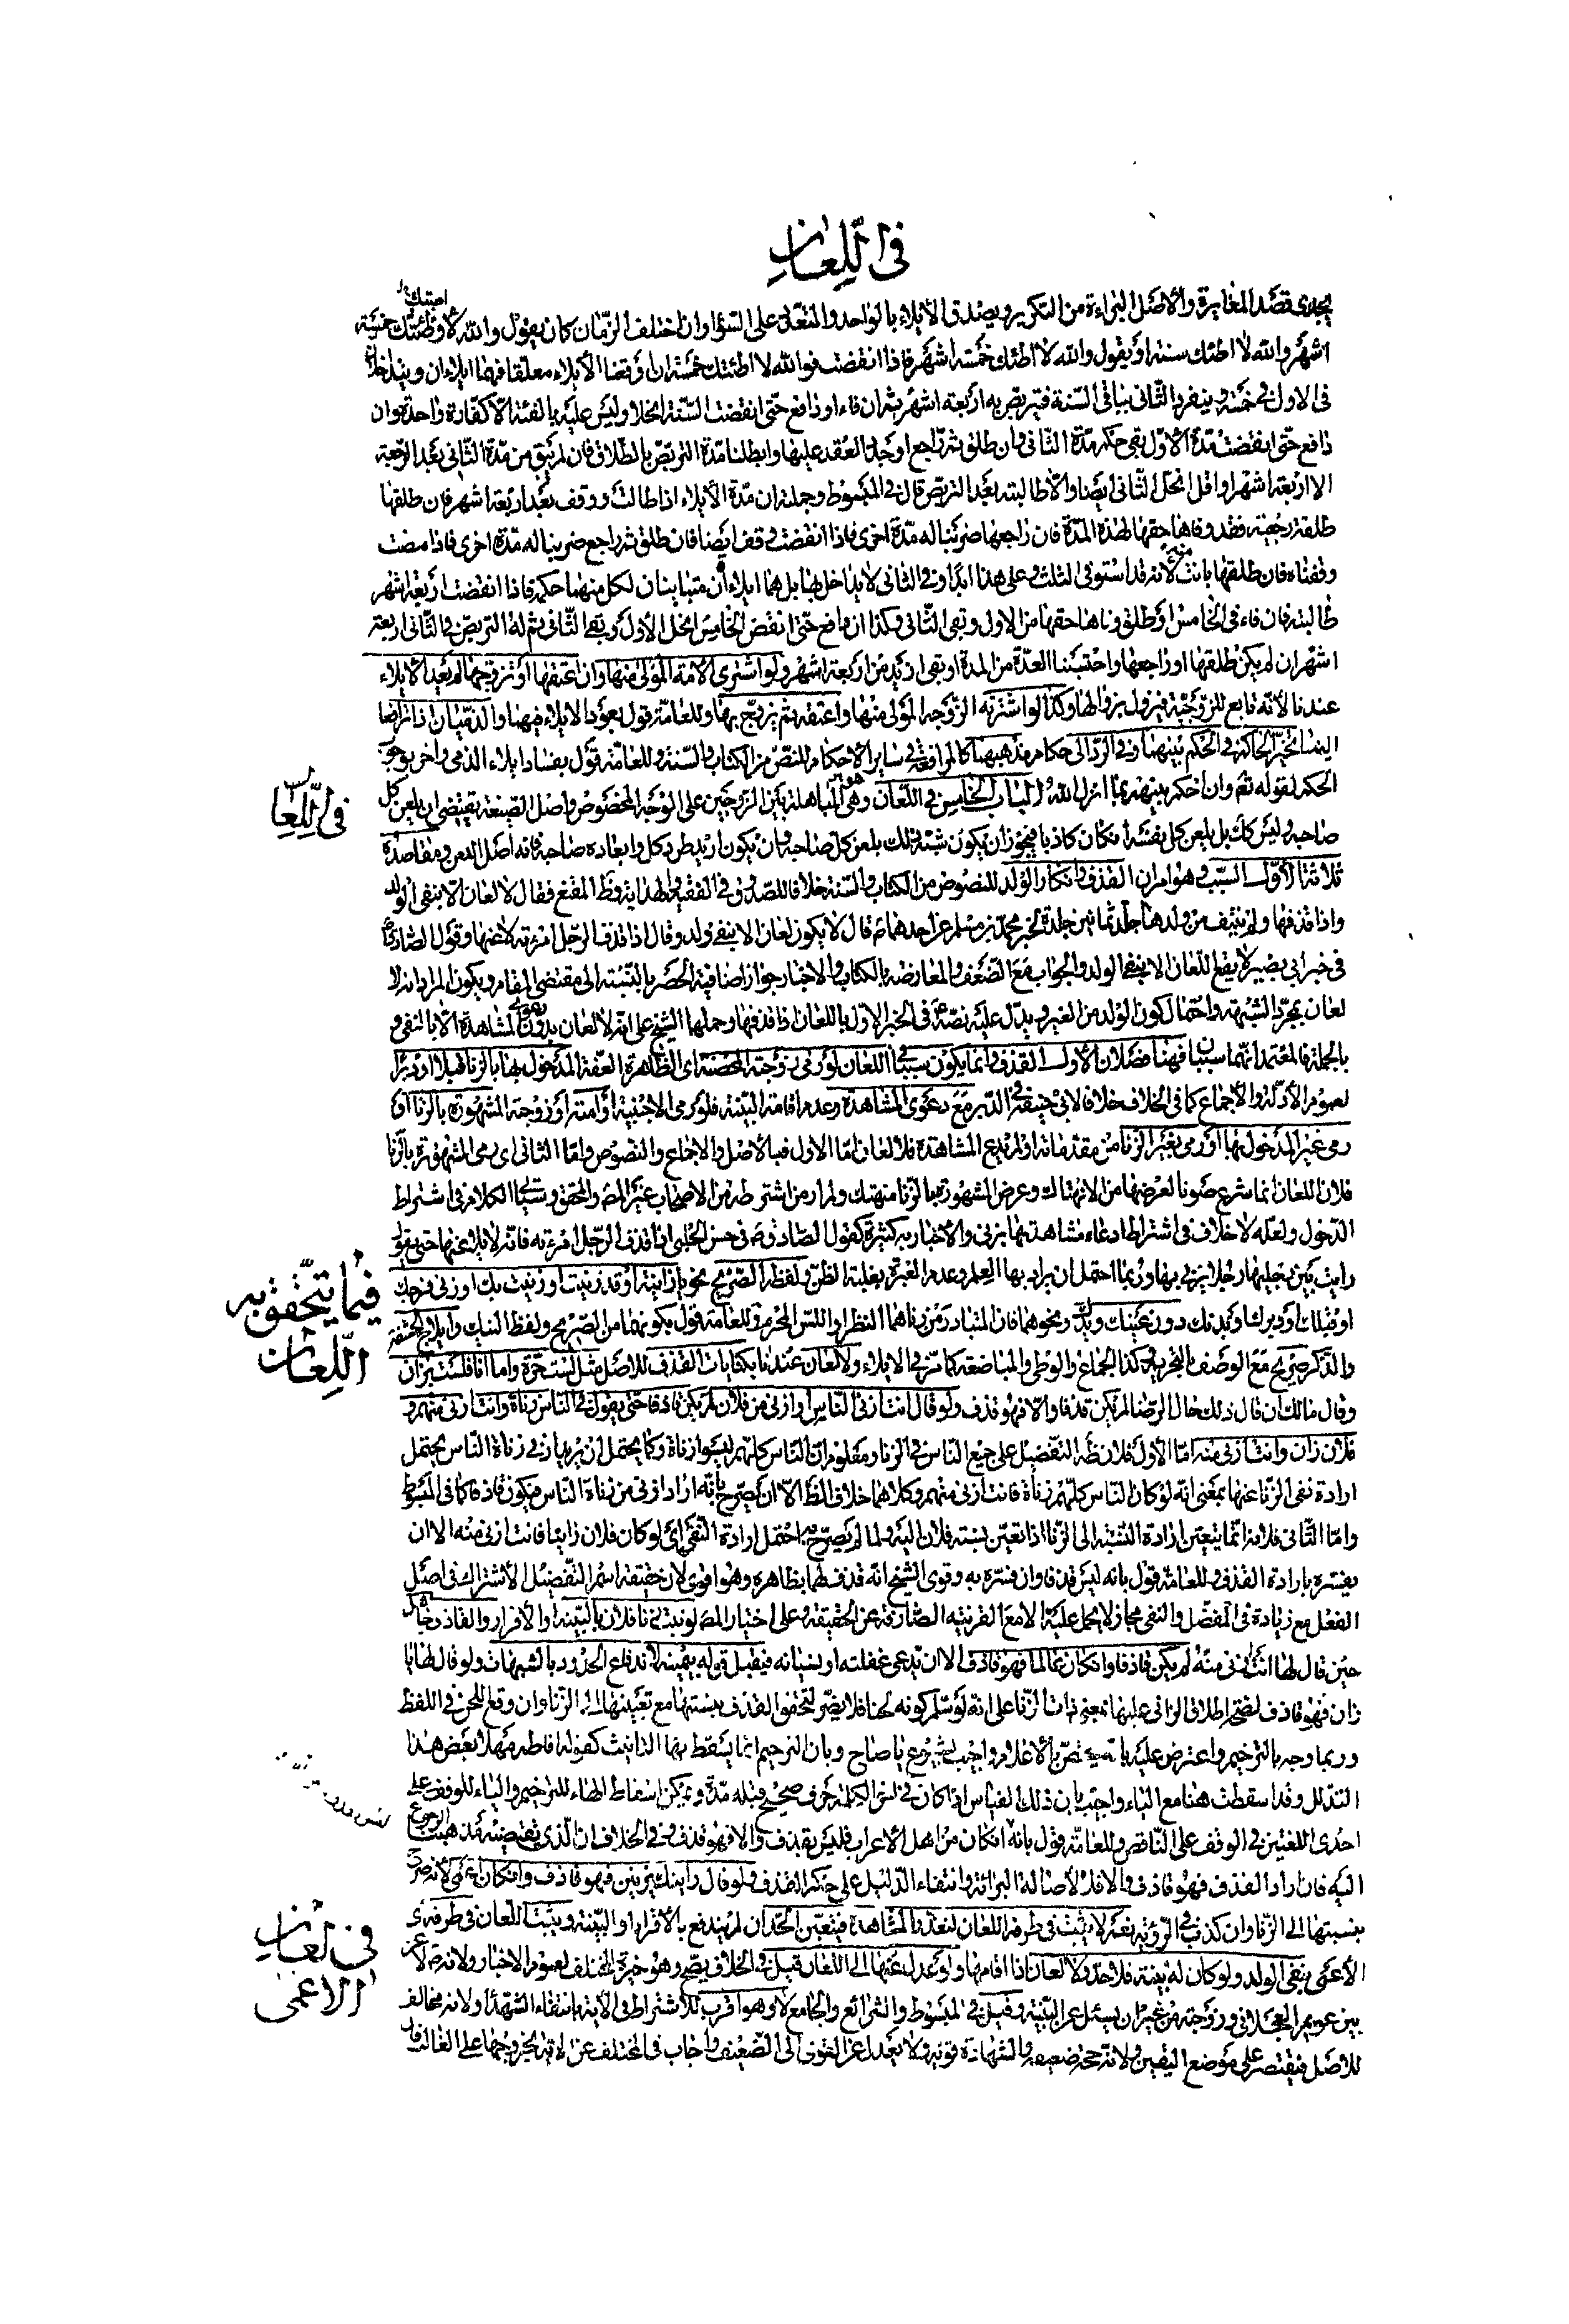 في اللعان
يجدي قصد المغايرة والاصل البراءة من التكرير ويصدق الايلاء بالواحد والمتعدد على السواء وان اختلف الزمان كان يقول والله لا وطئتك خمسة
اشهر والله لا اطئك سنة او يقول والله لا اطئك خمسة اشهر فاذا انقضت فوالله لا اطئتك خمسة ان وقعنا الايلاء معلقا فهما ايلاءان ويتداخلان
في الاول في خمسة وينفرد الثاني بباقي السنة فيتربص به اربعة اشهر ثم ان فاء او دافع حتى انقضت السنة انحلا وليس عليه بالفئة الا كفارة واحدة وان
دافع حتى انقضت مدة الاول بقي حكم مدة الثاني وان طلق ثم راجع او جدد العقد عليها وابطلنا مدة التربص بالطلاق فان لم يبق من مدة الثاني بعد الرجعة
الا اربعة اشهر او اقل انحل الثاني ايضا والا طالبته بعد التربص قال في المبسوط وجملته ان مدة الايلاء اذا طالت ووقف بعد اربعة اشهر فان طلقها
طلقة رجعية فقد وفاها حقها لهذه المدة فان راجعها ضربنا له مدة اخرى فاذا انقضت وقف ايضا فان طلق ثم راجع ضربنا له مدة اخرى فاذا مضت
وقفناه فان طلقها بانت منه لانه قد استوفى الثلث وعلى هذا ابدا وفي الثاني لا يداخل بها بل هما ايلاءان متباينان لكل منهما حكمه فاذا انقضت اربعة اشهر
طالبته فان فاء في الخامس او طلق وفاها حقها من الاول وبقي الثاني وكذا ان دافع حتى انقضى الخامس انحل الاول وبقي الثاني ثم له التربص في الثاني اربعة
اشهر ان لم يكن طلقها او راجعها واحتسبنا العدة من المدة او بقي ازيد من اربعة اشهر ولو اشترى الامة المولى منها وان اعتقها او تزوجها لم يعد الايلاء
عندنا لانه تابع للزوجية فيزول بزوالها وكذا لو اشترته الزوجة المولى منها واعتقته ثم تزوج بها وللعامة قول بعود الايلاء فيهما والذميان اذا ترافعا
الينا تخير الحاكم في الحكم بينهما وفي الرد الى حكام مذهبهما كالمرافعة في ساير الاحكام للنص من الكتاب والسنة وللعامة قول بفساد ايلاء الذمي واخر بوجوب
الحكم لقوله تعالى وان احكم بينهم بما انزل الله الباب الخامس في اللعان وهو المباهلة بين الزوجين على الوجه المخصوص واصل الصيغة يقتضي ان يلعن كل
صاحبه وليس كك بل يلعن كل نفسه ان كان كاذبا فيجوز ان يكون شبه ذلك بلعن كل صاحبه وان يكون اريد طرد كل وابعاده صاحبه فانه اصل اللعن ومقاصده
ثلاثة الاول السبب وهو امران القذف وانكار الولد للنصوص من الكتاب والسنة خلافا للصدوق في الفقيه والهداية وظ المقنع فقال لا لعان الا بنفي الولد
واذا قذفها ولم ينتف من ولدها جلد ثمانين جلدة لخبر محمد بن مسلم عن احدهما ع قال لا يكون لعان الا بنفي ولد وقال اذا قذف الرجل امرءته لاعنها وقول الصادق ع
في خبر ابي بصير لا يقع اللعان الا بنفي الولد والجواب مع الضعف والمعارضة بالكتاب والاخبار جواز اضافية الحصر بالنسبة الى مقتضى المقام ويكون المراد انه لا
لعان بمجرد الشبهة واحتمال كون الولد من الغير ويدل عليه نصه ع في الخبر الاول باللعان اذا قذفها وحملها الشيخ على انه لا لعان بدون دعوى المشاهدة الا بالنفي و
بالجملة فالمعتمد انهما سببان فهنا فصلان الاول القذف وانما يكون سببا في اللعان لو رمى زوجته المحصنة اي الظاهرة العفة المدخول بها بالزنا قبلا او دبرا
لعموم الادلة والاجماع كما في الخلاف خلافا لابي حنيفة في الدبر مع دعوى المشاهدة وعدم اقامة البينة فلو رمى الاجنبية او امته او زوجته المشهورة بالزنا او
رمى غير المدخول بها او رمى بغير الزنا من مقدماته او لم يدع المشاهدة فلا لعان اما الاول فبالاصل والاجماع والنصوص واما الثاني اي رمى المشهورة بالزنا
فلان اللعان انما شرع صونا لعرضها من الانهتاك وعرض المشهورة بالزنا منهتك ولم ار من اشترطه من الاصحاب غير المص والمحقق وسيأتي الكلام في اشتراط
الدخول ولعله لا خلاف في اشتراط ادعاء مشاهدتها تزني والاخبار به كثيرة كقول الصادق ع في حسن الحلبي اذا قذف الرجل امرءته فانه لا يلاعنها حتى يقول
رايت بين رجليها رجلا يزني بها وربما احتمل ان يراد بها العلم وعدم العبرة بغلبة الظن ولفظه الصريح نحو يا زانية او قد زنيت او زنت بك او زنى فرجك
او قبلك او دبرك او بدنك دون عينك ويدك ونحوهما فان المتبادر من زناهما النظر او اللمس المحرم وللعامة قول بكونهما من الصريح ولفظ النيك وايلاج الحشفة
والذكر صريح مع الوصف بالتحريم وكذا الجماع والوطي والمباضعة كما مر في الايلاء ولا لعان عندنا بكنايات القذف للاصل مثل لست حرة واما انا فلست بزان
وقال مالك ان قال ذلك حال الرضا لم يكن قذفا والا فهو قذف ولو قال انت ازنى الناس او ازنى من فلان لم يكن قاذفا حتى يقول في الناس زناة وانت ازنى منهم و
فلان زان وانت ازنى منه اما الاول فلان ظه التفضيل على جميع الناس في الزنا ومعلوم ان الناس كلهم ليسوا زناة وكما يحتمل ان يريد ازنى زناة الناس يحتمل
ارادة نفي الزنا عنها بمعنى انه لو كان الناس كلهم زناة فانت ازنى منهم وكلاهما خلاف الظ الا ان يصرح بانه اراد ازنى من زناة الناس فيكون قاذفا كما في المبسوط
واما الثاني فلانه انما يتعين ارادة النسبة الى الزنا اذا تعين نسبته فلان اليه ولما لم يصرح به احتمل ارادة النفي اي لو كان فلان زانيا فانت ازنى منه الا ان
يفسره بارادة القذف وللعامة قول بانه ليس قذفا وان فسره به وقوى الشيخ انه قذف لهما بظاهره وهو اقوى لان حقيقة اسم التفضيل الاشتراك في اصل
الفعل مع زيادة في المفضل والنفي مجاز لا يحمل عليه الا مع القرنية الصارفة عن الحقيقة وعلى اختيار المص لو ثبت زنا فلان بالبينة او الاقرار والقاذف جاهل
حين قال لها انت ازنى منه لم يكن قاذفا وان كان عالما فهو قاذف الا ان يدعي غفلته او نسيانه فيقبل قوله بيمينه لاندفاع الحدود بالشبهات ولو قال لها يا
زان فهو قاذف لصحة اطلاق الزاني عليها بمعنى ذات الزنا على انه لو سلم كونه لحنا فلا يضر لتحقق القذف بنسبتها مع تعيينها الى الزنا وان وقع اللحن في اللفظ
وربما وجه بالترخيم واعترض عليه باختصاص بالاعلام واجيب بشيوع يا صاح وبان الترخيم انما يسقط بها التانيث كقوله افاطم مهلا بعض هذا
التدلل وقد اسقطت هنا مع الياء واجيب بان ذلك القياس اذا كان في اخر الكلمة حرف صحيح قبله مدة ويمكن اسقاط الهاء للترخيم والياء للوقف على
احدى اللغتين في الوقف على الناقص وللعامة قول بانه ان كان من اهل الاعراب فليس بقذف والا فهو قذف وفي الخلاف ان الذي تقتضيه مذهبنا الرجوع
اليه فان اراد القذف فهو قاذف والا فلا لاصالة البرائة وانتفاء الدليل على حكم القذف ولو قال رايتك تزنين فهو قاذف وان كان اعمى لانه صرح
بنسبتها الى الزنا وان كذب في الرؤية نعم لا يثبت في طرفه اللعان لتعذر المشاهدة فيتعين الحد ان لم يندفع بالاقرار او البينة ويثبت اللعان في طرفه اي
الاعمى بنفي الولد ولو كان له بينة فلا حد ولا لعان اذا اقامها ولو عدل عنها الى اللعان قيل في الخلاف يصح وهو خيرة المختلف لعموم الاخبار ولانه ص لاعن
بين عويمر العجلاني وزوجته من غير ان يسئل عن البينة وقيل في المبسوط والشرائع والجامع لا وهو اقرب للاشتراط في الاية بانتفاء الشهداء ولانه مخالف
للاصل فيقتصر على موضع اليقين ولانه حجة ضعيفة والشهادة قوية ولا يعدل عن القوي الى الضعيف واجاب في المختلف عن الاية بخروجها على الغالب
في اللعان
فيما يتحقق به
اللعان
في لعان
الاعمى